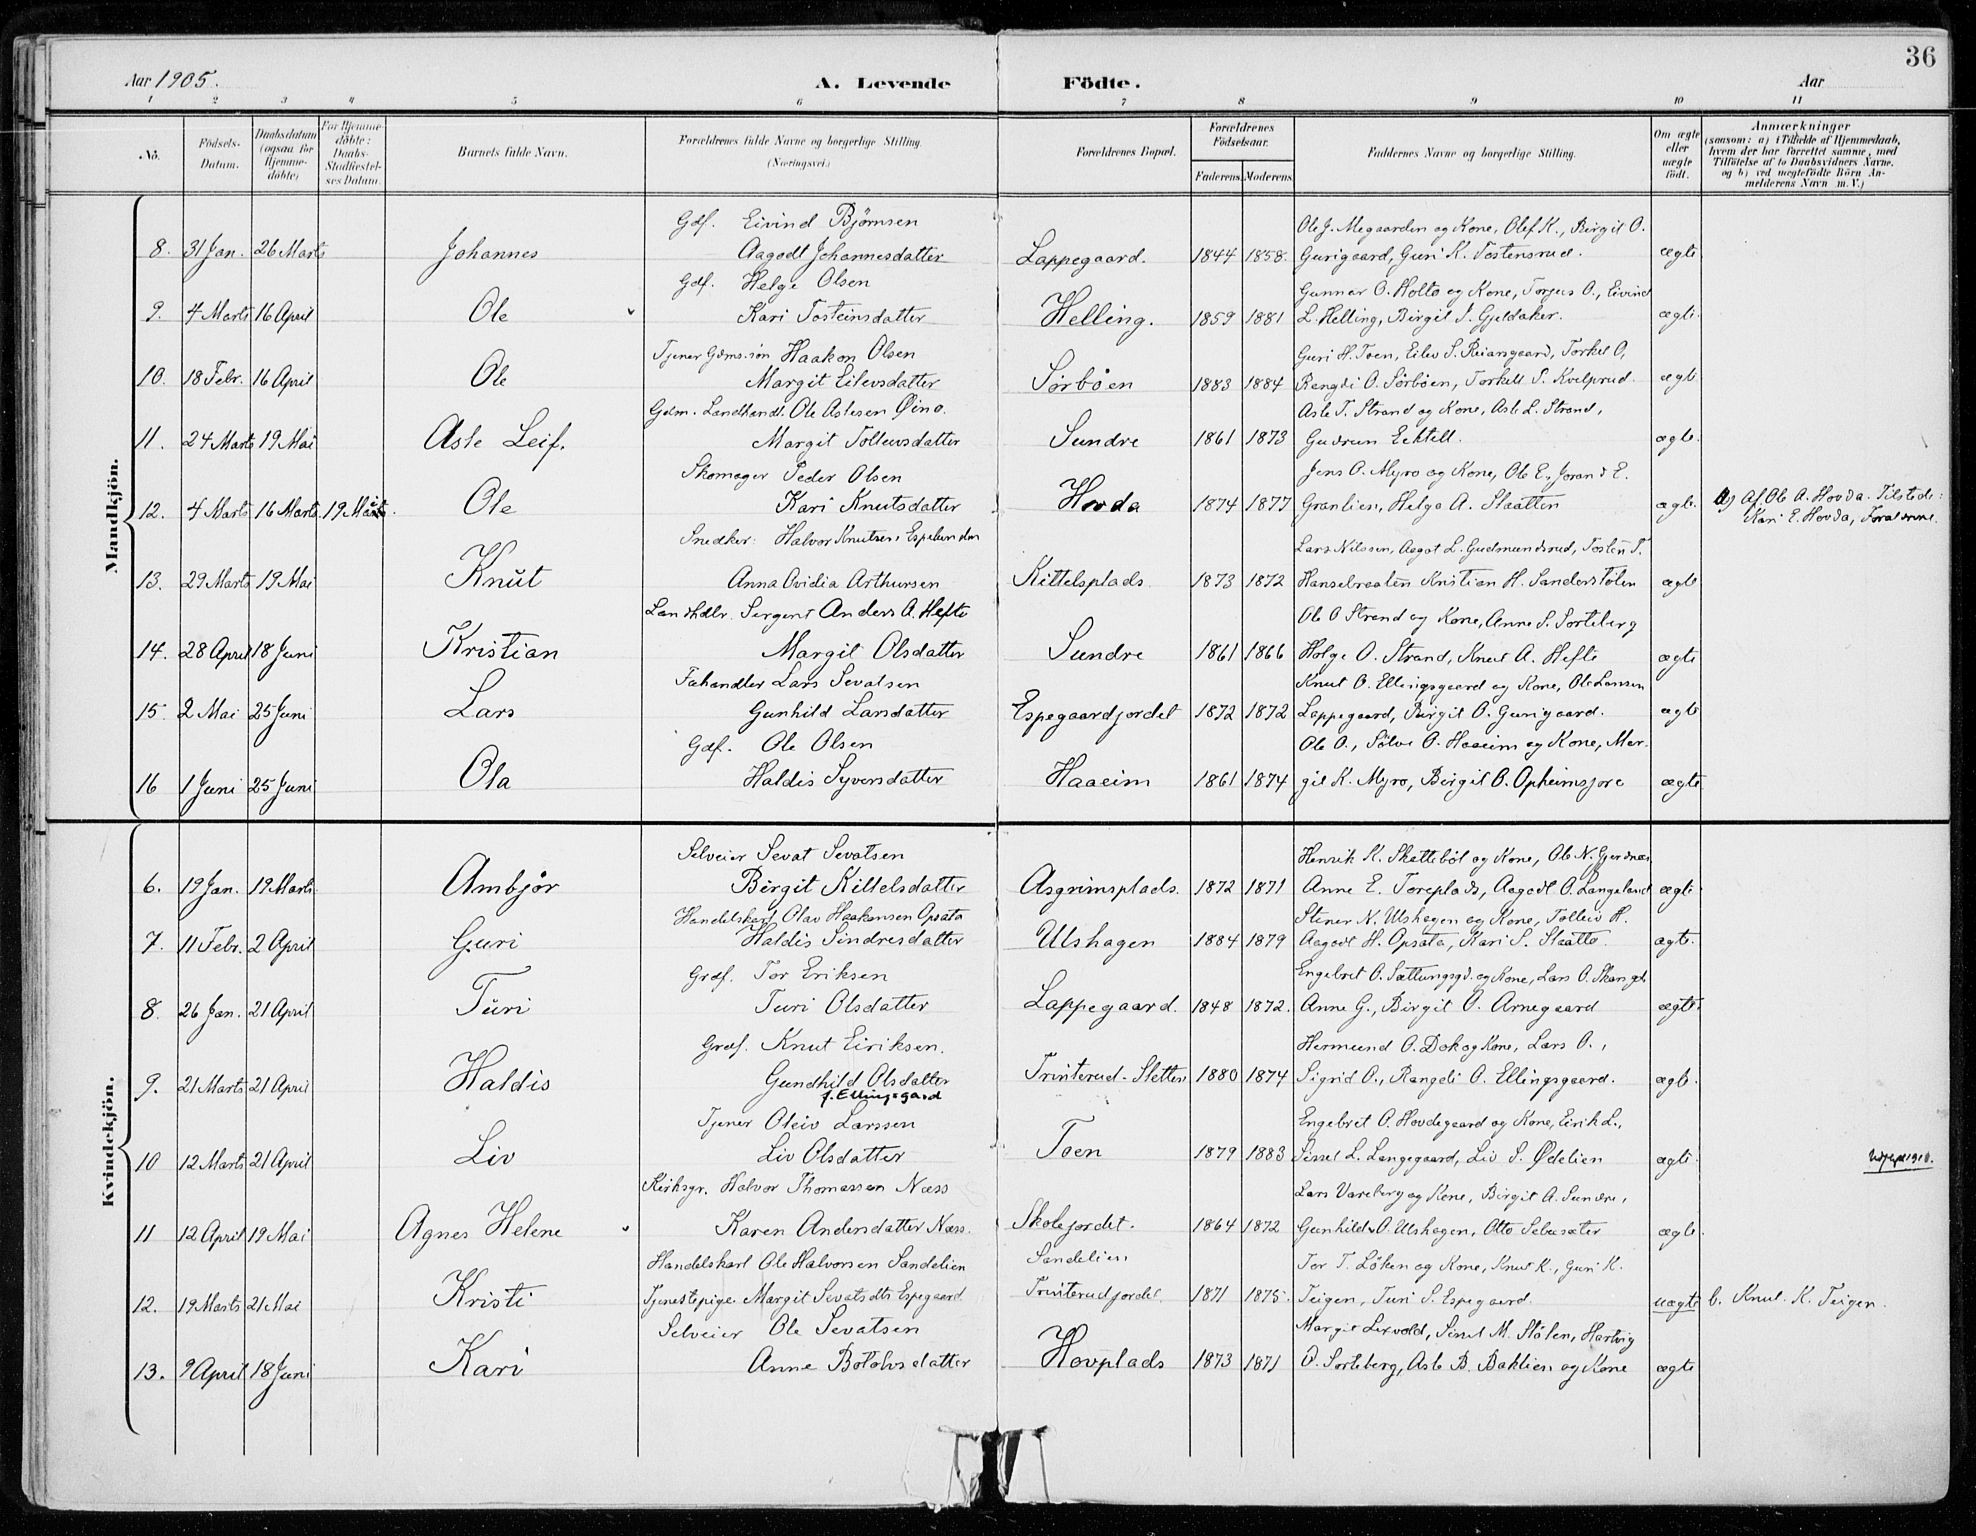 36
Aar 1905. A. Levende Födte. Aar
1 2 3 4 5 6 7 8 9 10 11
No. Födsels-Datum. Daabsdatum (ogsaa for Hjemme-döbte) For Hjemme-döbte: Daabs-Stadfæstel-ses Datum. Barnets fulde Navn. Forældrenes fulde Navne og borgerlige Stilling. (Næringsvei.) Forældrenes Bopæl. Forældrenes Födselsaar. Faderens. Moderens. Faddernes Navne og borgerlige Stilling. Om ægte eller uægte födt. Anmærkninger (saasom: a) i Tilfælde af Hjemmedaab, hvem der har forrettet samme, med Tilföielse af to Daabsvidners Navne, og b) ved uegtefödte Börn An-melderens Navn m. V.)
Mandkjön.
Gdf. Eivind Bjørnsen Ole J. Megaarden og Kone, Olef K., Birgit O.
8. 31 Jan. 26 Marts Johannes Aagodt Johannesdatter Lappegaard. 1844 1858. Gurigaard, Guri K. Tostensrud. ægte
Gdf. Helge Olsen Gunnar O. Holto og Kone, Torgus O., Eivind
9. 4 Marts 16 April Ole Kari Tosteinsdatter Helling. 1859 1881 L. Helling, Birgit S. Gjeldaker. ægte
Tjener Gdms.søn Haakon Olsen Guri H. Toen, Eilev S. Reiarsgaard, Torkel O,
10. 18 Febr. 16 April Ole Margit Eilevsdatter Sørbøen 1883 1884 Rangdi O. Sørbøen, Torkell S. Kvelprud. ægte
Gdm. Landhandl. Ole Aslesen Øino. Asle T. Strand og Kone, Asle L. Strand,
11. 24 Marts 19 Mai Asle Leif. Margit Tollevsdatter Sundre 1861 1873 Gudrun Ecktell. ægte.
Skomager Peder Olsen Jens O. Myro og Kone, Ole E., Jorand E.
12. 4 Marts 16 Marts 19 Marts. Ole Kari Knutsdatter Hovda 1874 1877 Granlien, Helga A. Slaatten ægte. a) Af Ole A. Hovda. Tilstede:
Kari E. Hovda, Forældrene.
Snedker. Halvor Knutsen Espelunden Lars Nilssen, Aagot L. Gudmundsrud, Tosten T.
13. 29 Marts 19 Mai Knut Anna Ovidia Arthursen Kittelsplads 1873 1872 Hanselreaten Kristian H. Sanderstølen ægte.
Landhdlr. Sergent Anders A. Hefte Ole O Strand og Kone, Anne S. Sorteberg
14. 28 April 18 Juni Kristian Margit Olsdatter Sundre 1861 1866 Helge O. Strand, Knut A. Hefte ægte
Fæhandler Lars Sevatsen Knut O. Ellingsgaard og Kone, Ole Larssen
15. 2 Mai 25 Juni Lars Gunhild Larsdatter Espegaardjordet 1872 1872 Lappegaard, Birgit O. Gurigaard. ægte
Gdf. Ole Olsen Ole O., Sølve O. Haaeim og Kone, Mar-
16 1 Juni 25 Juni Ola Haldis Syversdatter Haaeim 1861 1874 git K. Myro, Birgit O. Opheimsjore ægte
Kvindekjön.
Selveier Sevat Sevatsen Henrik K. Skattebøl og Kone, Ole N. Gjerdnæs
6. 19 Jan. 19 Marts Ambjør Birgit Kittelsdatter Asgrimsplads. 1872 1871 Anne E. Toreplads, Aagodt O. Langeland ægte
Handelskarl Olav Haakensen Opsata Stener N. Ulshagen og Kone, Tolleiv H.
7. 11 Febr. 2 April Guri Haldis Sindresdatter Ulshagen 1884 1879 Aagodt H. Opsata, Kari S. Slaatto. ægte.
Grdf. Tor Eriksen Engebret O. Sætlungsgd. og Kone, Lars O. Skarsgd.
8. 26 Jan. 21 April Turi Turi Olsdatter Lappegaard. 1848 1872. Anne G., Birgit O. Arnegaard ægte.
Grdf. Knut Eiriksen. Hermund O. Dok og Kone, Lars O.,
9. 21 Marts 21 April Haldis Gundhild Olsdatter Trinterud-Sletten 1880 1874 Sigrid O., Rangdi O. Ellingsgaard. ægte.
f. Ellingsgaard
Tjener Oleiv Larssen Engebrit O. Hovdegaard og Kone, Eirik L.,
10 12 Marts 21 April Liv Liv Olsdatter Toen 1879 1883 Sissel L. Langegaard, Liv S. Ødelien ægte
Kirksgr. Halvor Thomassen Næss Lars Vareberg og Kone, Birgit A. Sundre,
11 12 April 19 Mai Agnes Helene Karen Andersdatter Næss. Skolejordet. 1864 1872 Gunhild O. Ulshagen, Otto Sebusæter ægte.
Handelskarl Ole Halvorsen Sandelien Sandelien Tor T. Löken og Kone, Knut K., Guri K.
12. 19 Marts 21 Mai Kristi Tjenestepige Margit Sevatsdtr Espegaard Trinterudjordet. 1871 1875. Teigen, Turi S. Espegaard. uægte b. Knut K. Teigen.
Selveier Ole Sevatsen Margit Lixvold, Sissel M. Stölen, Hartvig
13. 9 April 18 Juni Kari Anne Botolvsdatter Hovplads 1873 1871 O. Sorteberg, Asle B. Baklien og Kone ægte